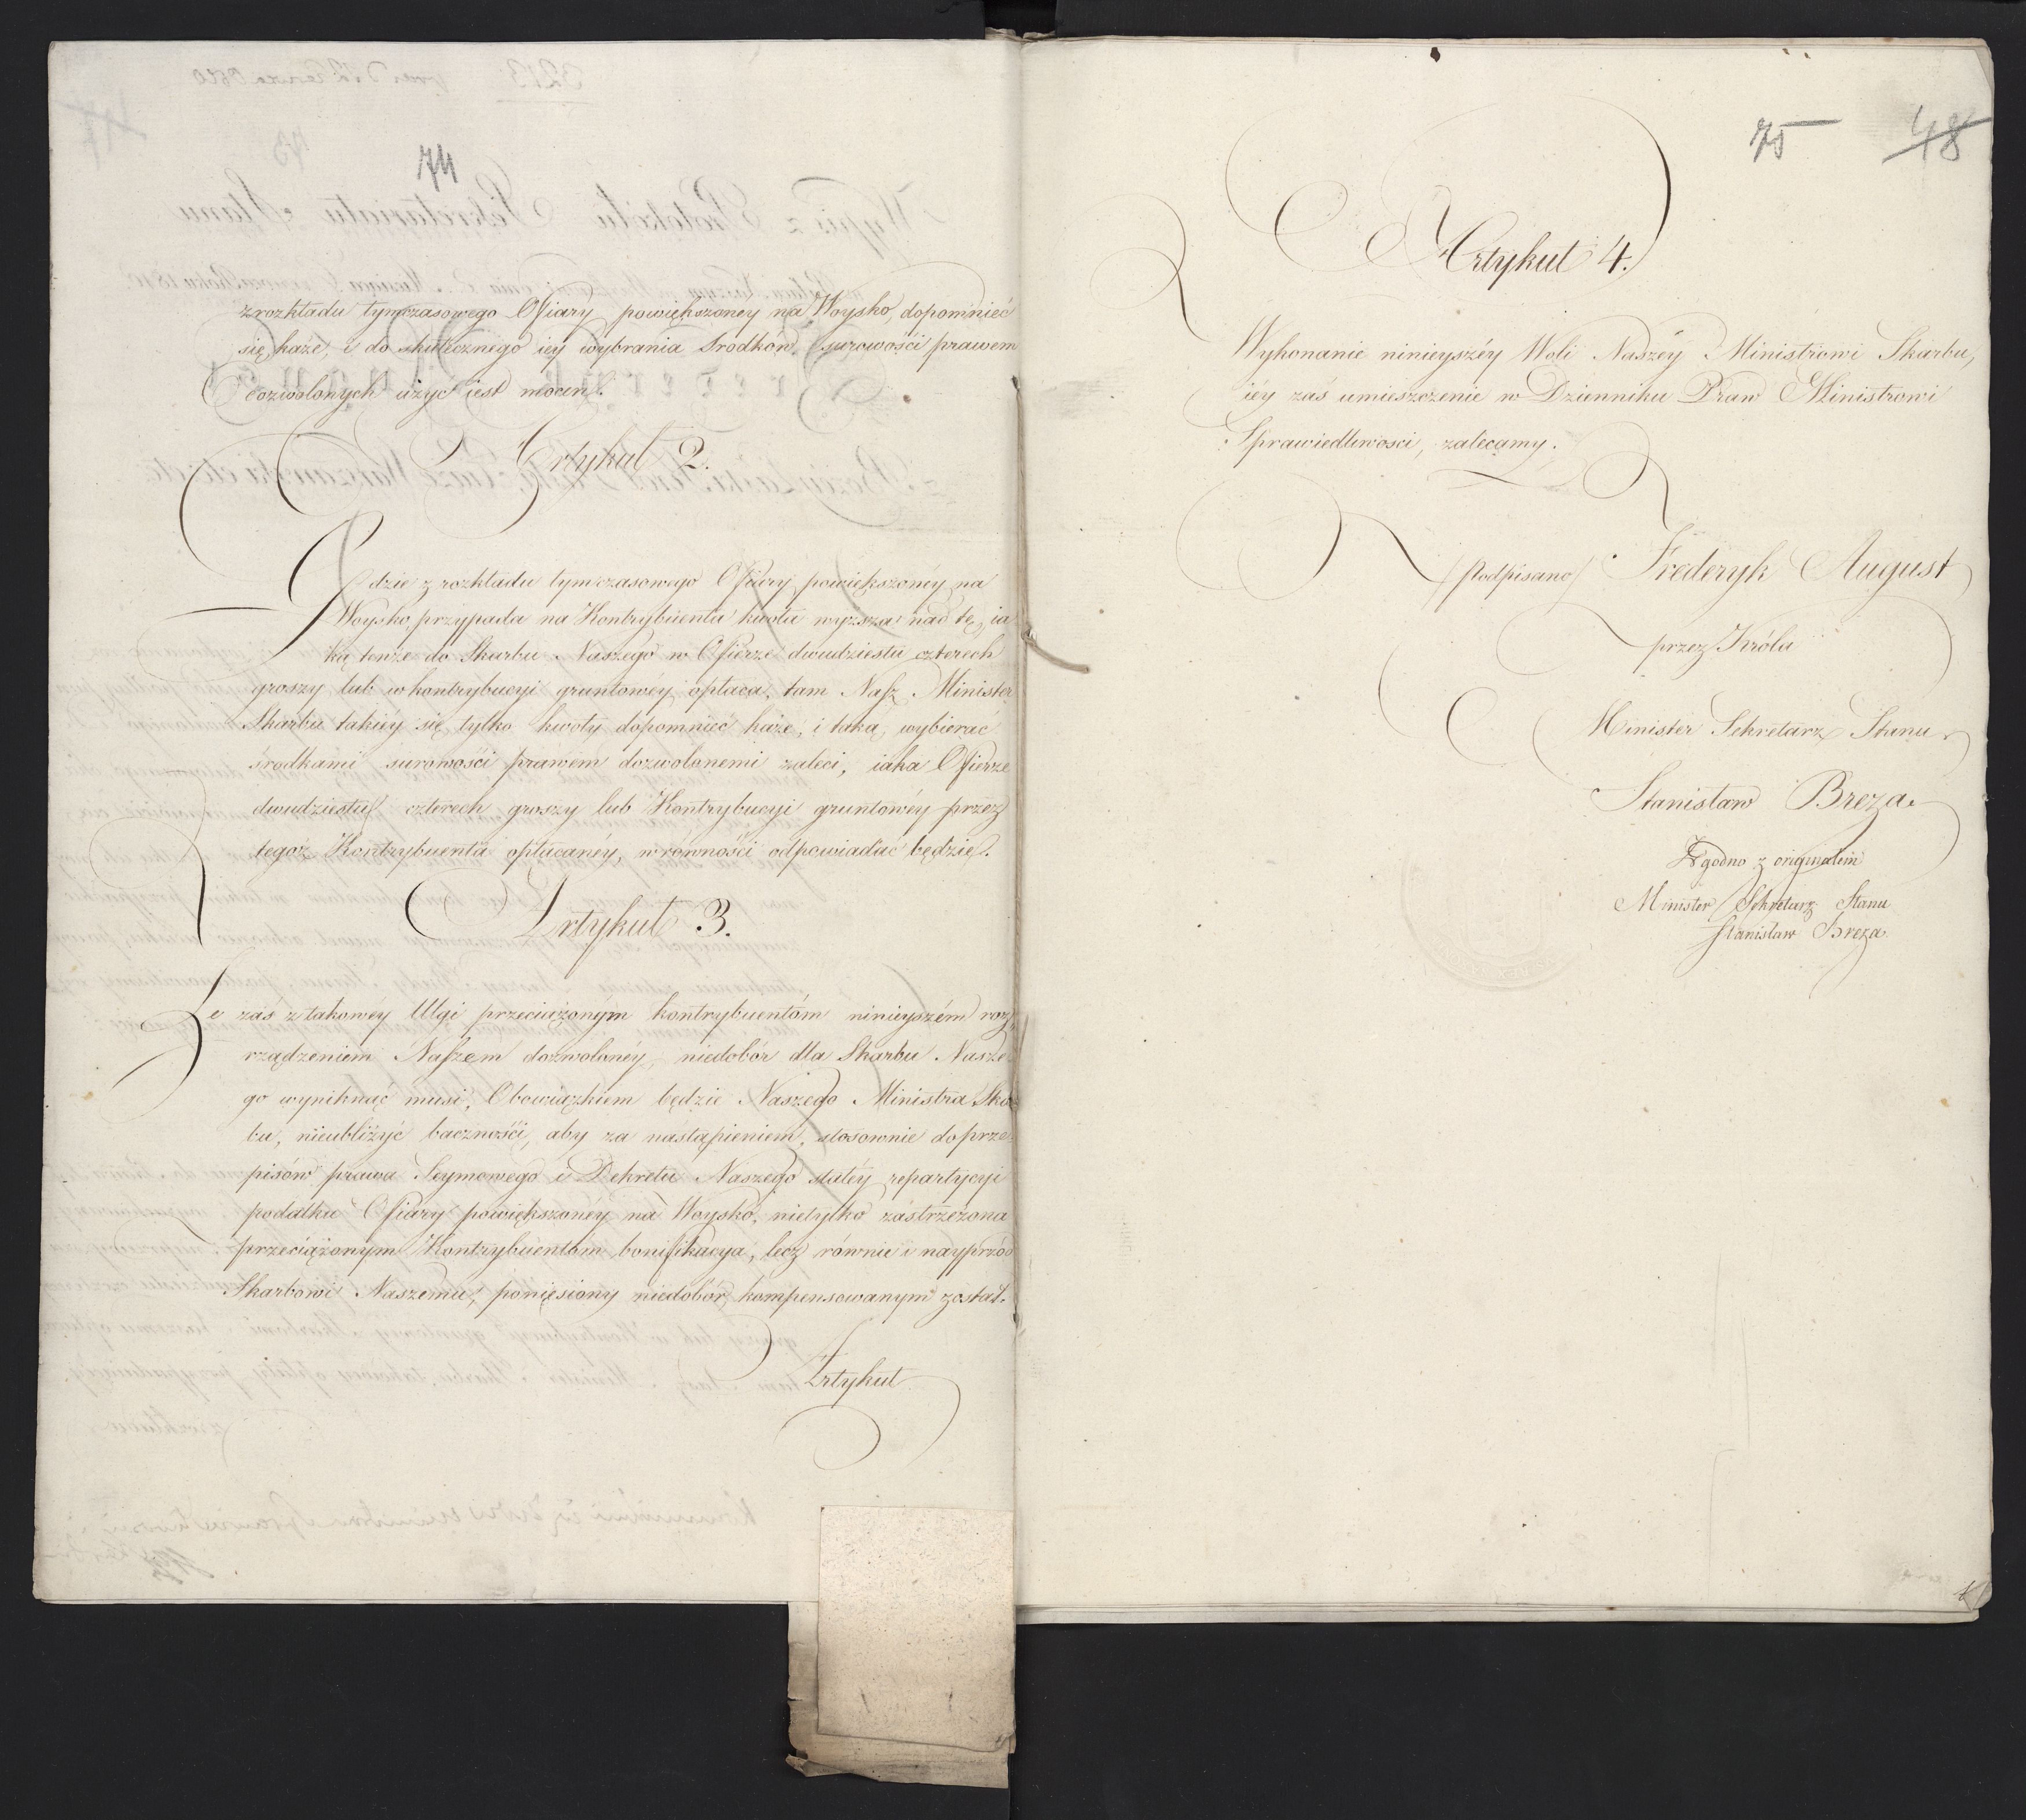 74
z rozkładu tymczasowego Ofiary powiększoney na Woysko, dopomnieć
się każe, i do skutecznego iey wybrania Srodków, surowości prawem
dozwolonych użyć iest mocen.
Artykuł 2.
Gdzie z rozkładu tymczasowego Ofiary powiększonéy na
Woysko, przypada na Kontrybuenta kwota wyższa nad tę, ia
ką tenże do Skarbu Naszego w Ofierze dwudziestu czterech
groszy lub w kontrybucyi gruntowéy opłaca, tam Nasz Minister
Skarbu takiéy się tylko kwoty dopomnieć każe, i taką wybierać
środkami surowości prawem dozwolonemi zaleci, iaka Ofierze
dwudziestu czterech groszy lub Kontrybucyi gruntowéy przez
tegoż Kontrybuenta opłacanéy, w równości odpowiadać będzie.
Artykuł 3.
Że zaś z takowéy Ulgi przeciążonym kontrybuentóm ninieyszém roz„
rządzeniem Naszem dozwolonéy, niedobór dla Skarbu Nasze
go wyniknąć musi, Obowiązkiem będzie Naszego Ministra Skar
bu, nieubliżyć baczności, aby za nastąpieniem, stosownie do prze
pisów prawa Seymowego i Dekretu Naszego stałéy repartycyi
podatku Ofiary powiększonéy na Woysko, nietylko zastrzeżona
przeciążonym Kontrybuentom bonifikacya, lecz równie i nayprzód
Skarbowi Naszemu, poniesiony niedobór, kompensowanym został.
Artykuł
75 48
Artykuł 4.
Wykonanie ninieyszéy Woli Naszéy Ministrowi Skarbu,
iéy zaś umieszczenie w Dzienniku Praw Ministrowi
Sprawiedliwości, zalecamy.
/podpisano/ Frederyk August
przez Króla
Minister Sekretarz Stanu
Stanisław Breza.
Zgodno z originałem
Minister Sekretarz Stanu
Stanisław Breza